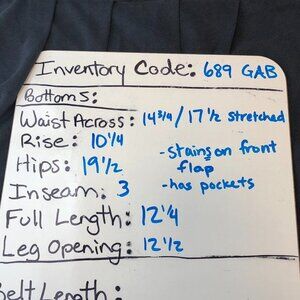 Inventory Code: 689 GAB
Bottoms:
Waist Across: 14 3/4 / 17 1/2 stretched
Rise: 10 1/4
Hips: 19 1/2
- stains on front
flap
- has pockets
Inseam: 3
Full Length: 12 1/4
Leg Opening: 12 1/2
Belt Length: